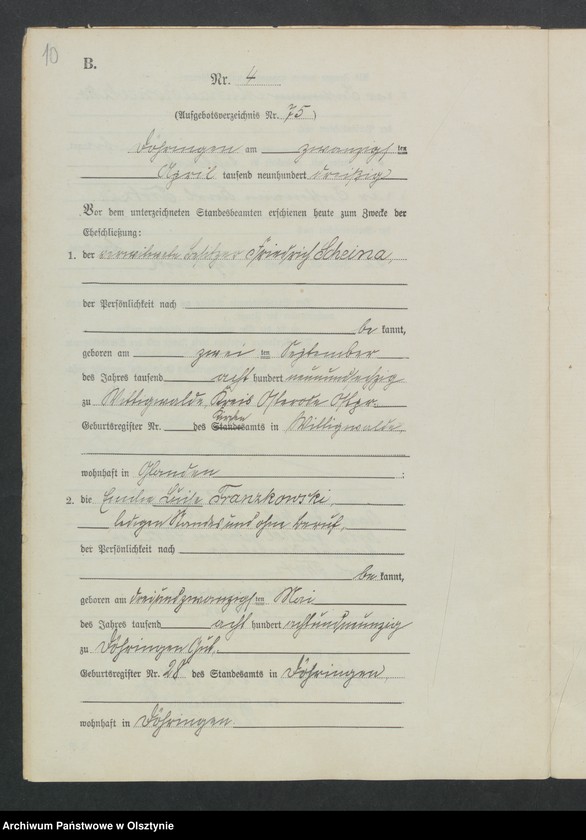 10
B.
Nr. 4
(Aufgebotsverzeichnis Nr. 75)
Döhringen am zwanzigsten
April tausend neunhundert dreißig
Vor dem unterzeichneten Standesbeamten erschienen heute zum Zwecke der
Eheschließung:
1. der verwitwete Besitzer Friedrich Scheina,
der Persönlichkeit nach
be kannt,
geboren am zwei ten September
des Jahres tausend acht hundert neunundsechzig
zu Wittigwalde, Kreis Osterode Ostpr.
Geburtsregister Nr. des Standesamts in Wittigwalde,
wohnhaft in Glanden ;
2. die Emilie Luise Franzkowski,
ledigen Standes und ohne Beruf,
der Persönlichkeit nach
be kannt,
geboren am dreiundzwanzigsten Mai
des Jahres tausend acht hundert achtundneunzig
zu Döhringen Gut.
Geburtsregister Nr. 28 des Standesamts in Döhringen
wohnhaft in Döhringen
Archiwum Państwowe w Olsztynie